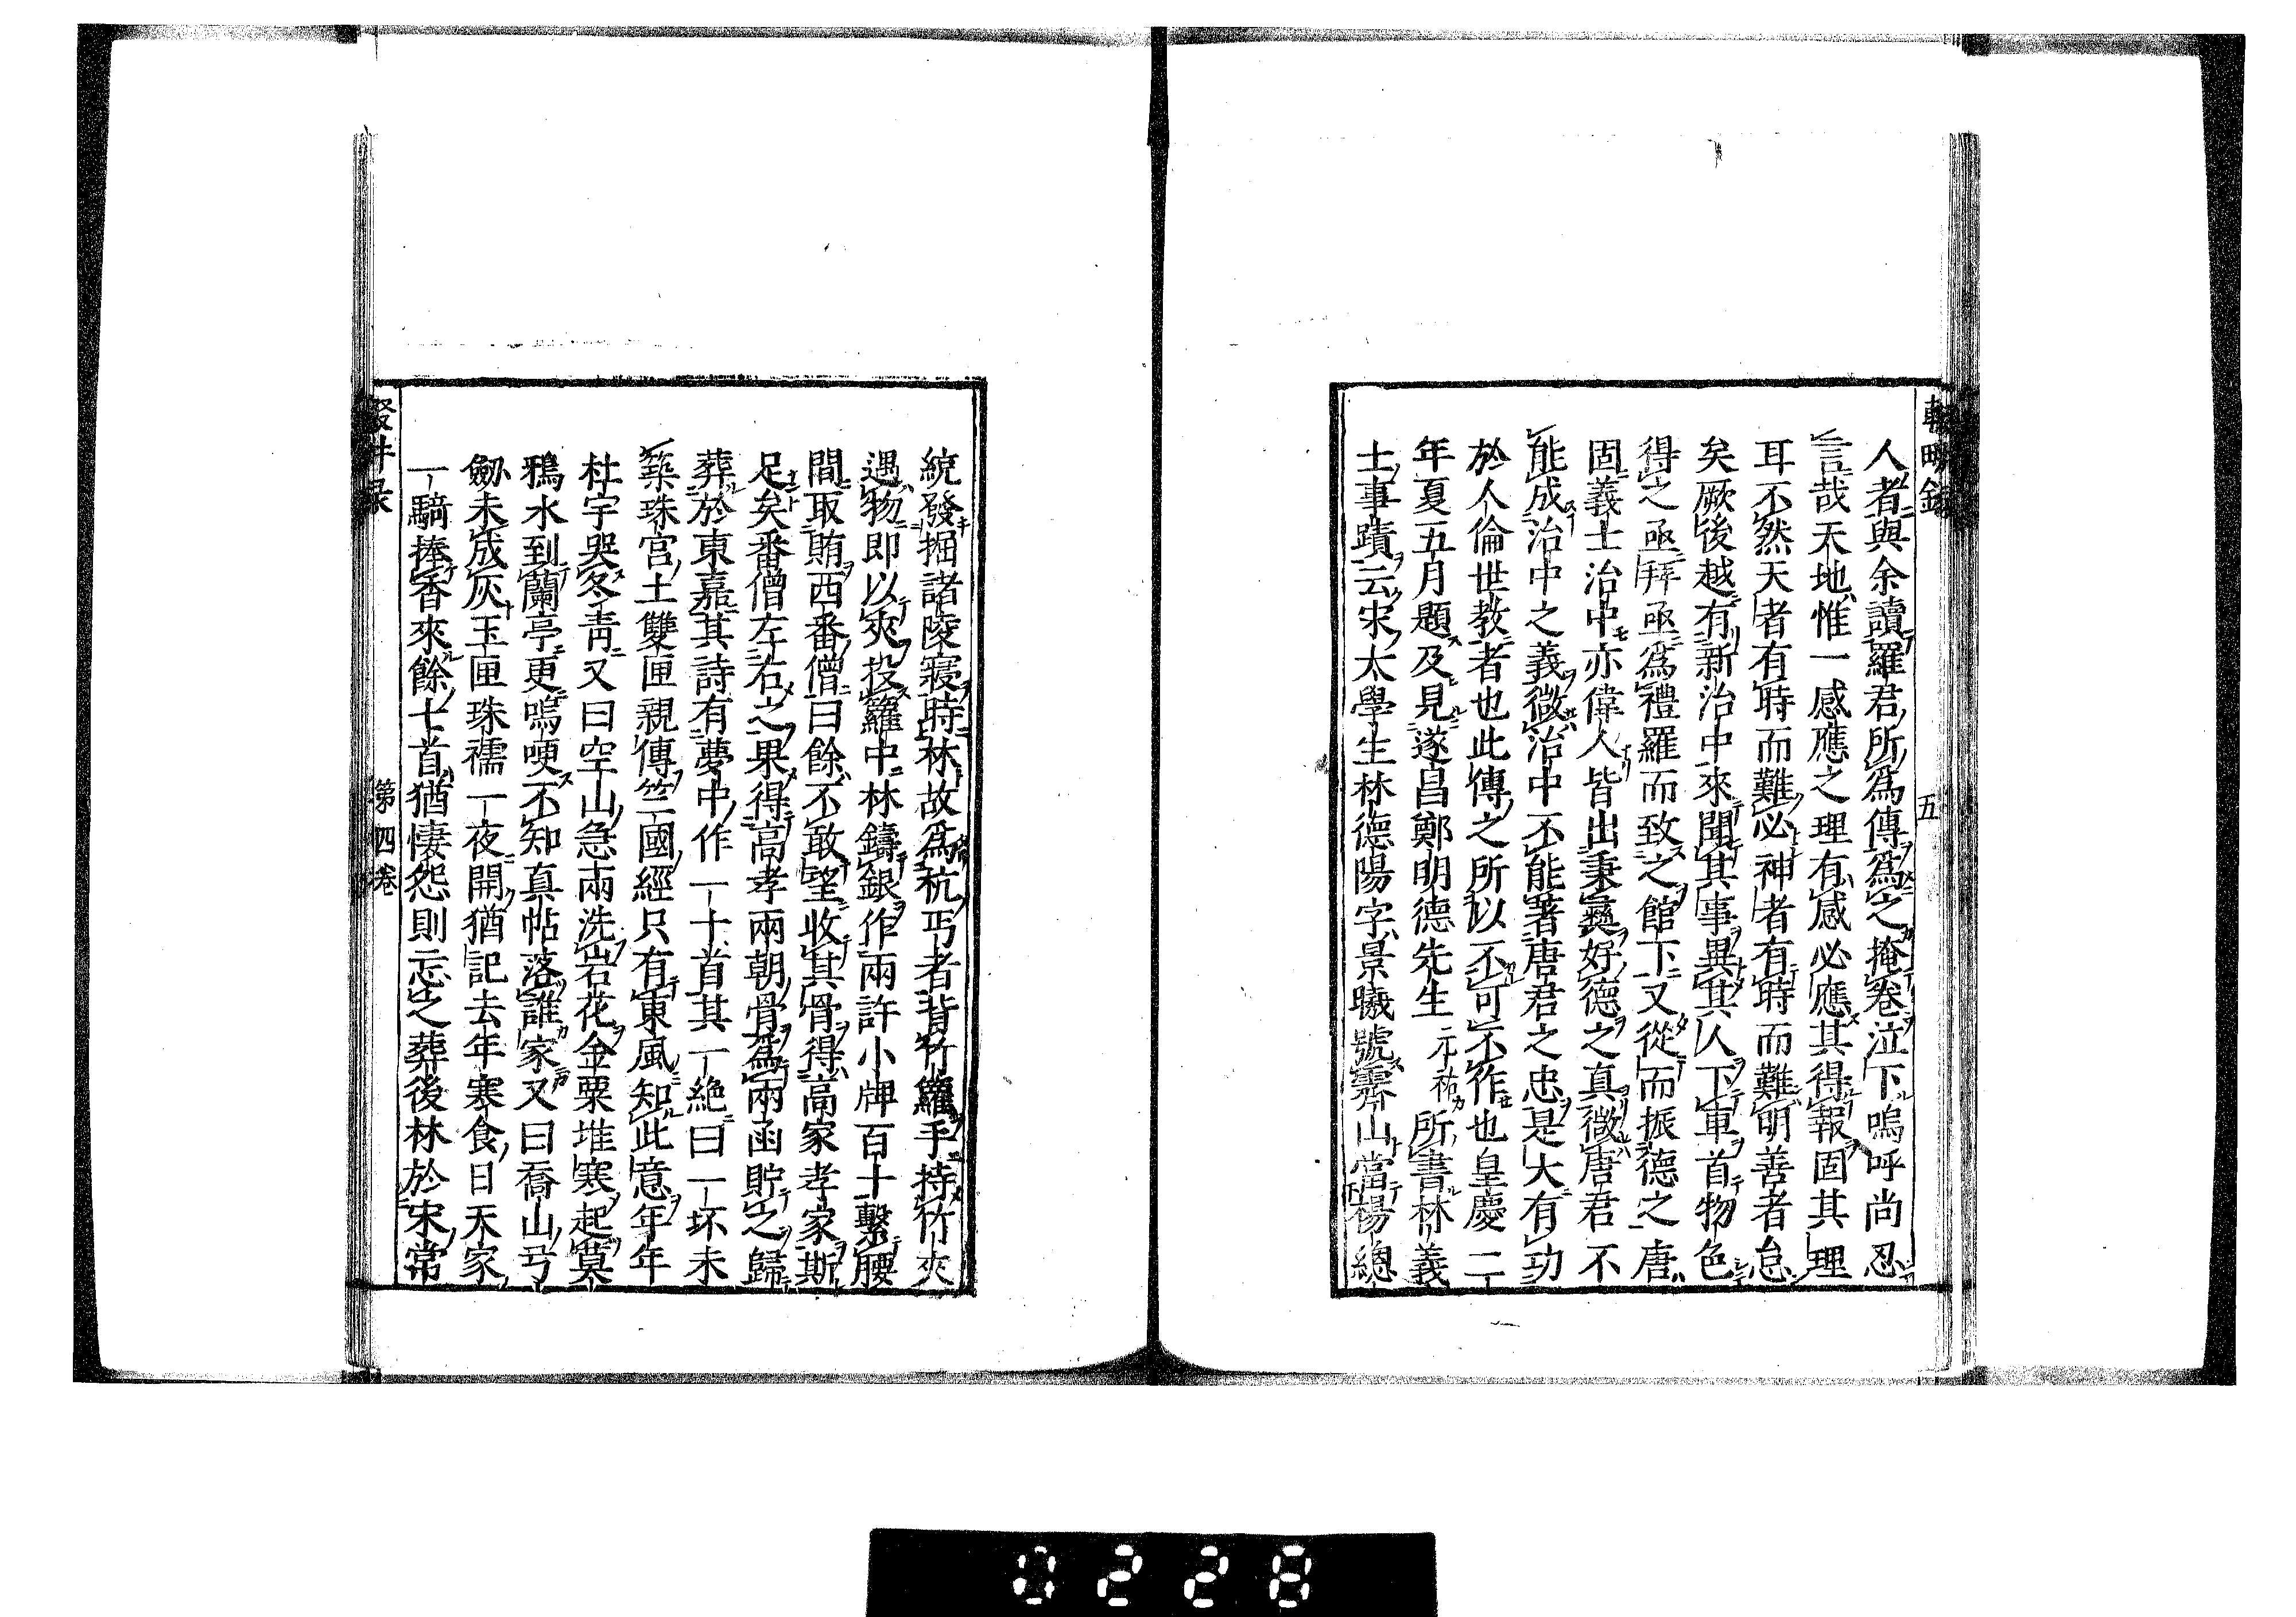 人者與余讀羅君所爲傳爲之掩卷泣下嗚呼尚忍
言哉天地惟一感應之理有感必應其得報固其理
耳不然天者有時而難必神者有時而難明善者怠
矣厥後越有新治中來聞其事異其人下車首物色
得之亟拜亟爲禮羅而致之館下又從而振德之唐
固義士治中亦偉人皆出秉彝好德之真微唐君不
能成治中之義微治中不能著唐君之忠是大有功
於人倫世教者也此傳之所以不可不作也皇慶二
年夏五月題及見遂昌鄭明德先生元祐所書林義
士事蹟云宋太學生林德陽字景曦號霽山當楊總
五
統發掘諸陵寢時林故爲杭丐者背竹籮手持竹夾
遇物即以夾投籮中林鑄銀作兩許小牌百十繫腰
間取賄西番僧曰餘不敢望收其骨得高家孝家斯
足矣番僧左右之果得高孝兩朝骨爲兩函貯之歸
葬於東嘉其詩有夢中作一十首其一絶曰一坏未
築珠宮土雙匣親傳竺國經只有東風知此意年年
杜宇哭冬青又曰空山急雨洗岩花金粟堆寒起莫
鴉水到蘭亭更嗚哽不知真帖落誰家又曰喬山弓
劒未成灰玉匣珠襦一夜開猶記去年寒食日天家
一騎捧香來餘七首猶悽怨則忘之葬後林於宋常
第四卷